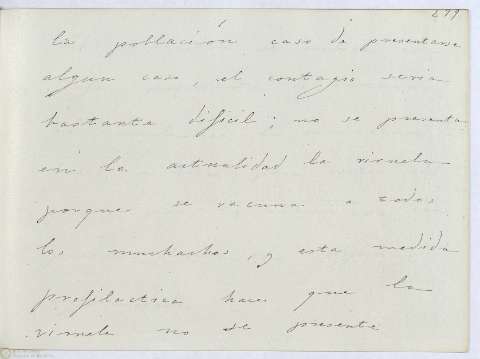 279
la población caso de presentarse
algun caso, el contagio seria
bastante dificil; no se presenta
en la actualidad la viruela
porque se vacuna a todos
los muchachos, y esta medida
profilactica hace que la
viruela no se presente